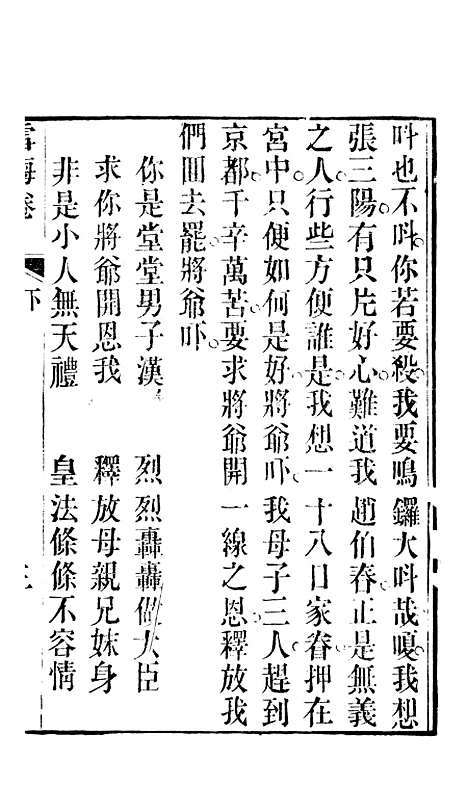 呌也不呌你若要殺我要鳴鑼大呌哉嗄我想
張三陽有只片好心難道我趙伯春正是無義
之人行些方便誰是我想一十八口家眷押在
宮中只便如何是好將爺吓我母子三人趕到
京都千辛萬苦要求將爺開一線之恩釋放我
們囬去罷將爺吓
你是堂堂男子漢 烈烈轟轟做大臣
求你將爺開恩我 釋放母親兄妹身
非是小人無天禮 皇法條條不容情
雪梅卷 下